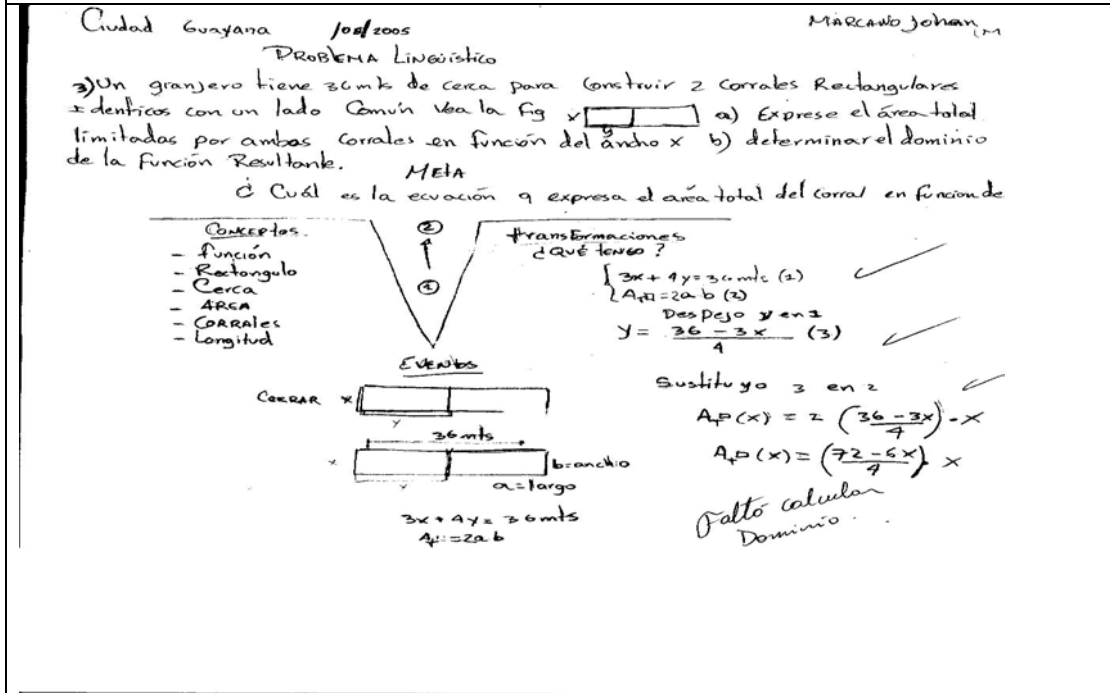 Ciudad Guayana /08/2005 MARCANO Johan, M
PROBLEMA LINGÜÍSTICO
3) Un granjero tiene 36 mts de cerca para Construir 2 corrales Rectangulares
Identicos con un lado Común Vea la fig x y a) Exprese el área total
limitadas por ambos corrales en función del áncho x b) determinar el dominio
de la función Resultante.
META
¿ Cuál es la ecuación q expresa el area total del corral en funcion de
CONCEPTOS.
- función
- Rectangulo
- Cerca
- AREA
- CORRALES
- Longitud
②
①
transformaciones
¿QUÉ tengo ?
3x + 4y = 36 mts (1)
A = 2a b (2)
Despejo y en 1
y = 36 - 3x / 4 (3)
Sustituyo 3 en 2
A (x) = 2 (36 - 3x / 4) . x
A (x) = (72 - 6x / 4) x
Faltó calcular
Dominio.
EVENTOS
CERRAR x
y
36 mts
x b=anchio
y a=largo
3x + 4y = 36 mts
A = 2a b